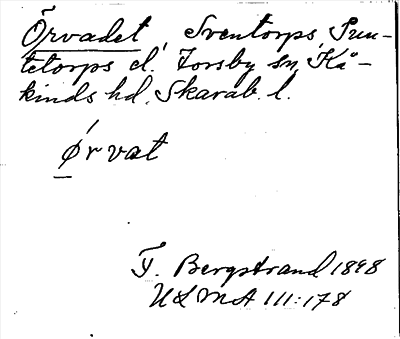 Örvadet, Sventorps, Sun-
tetorps el. Forsby sn, Kå-
kinds hd, Skarab. l.
ørvat
F. Bergstrand 1898
ULMA 111:178